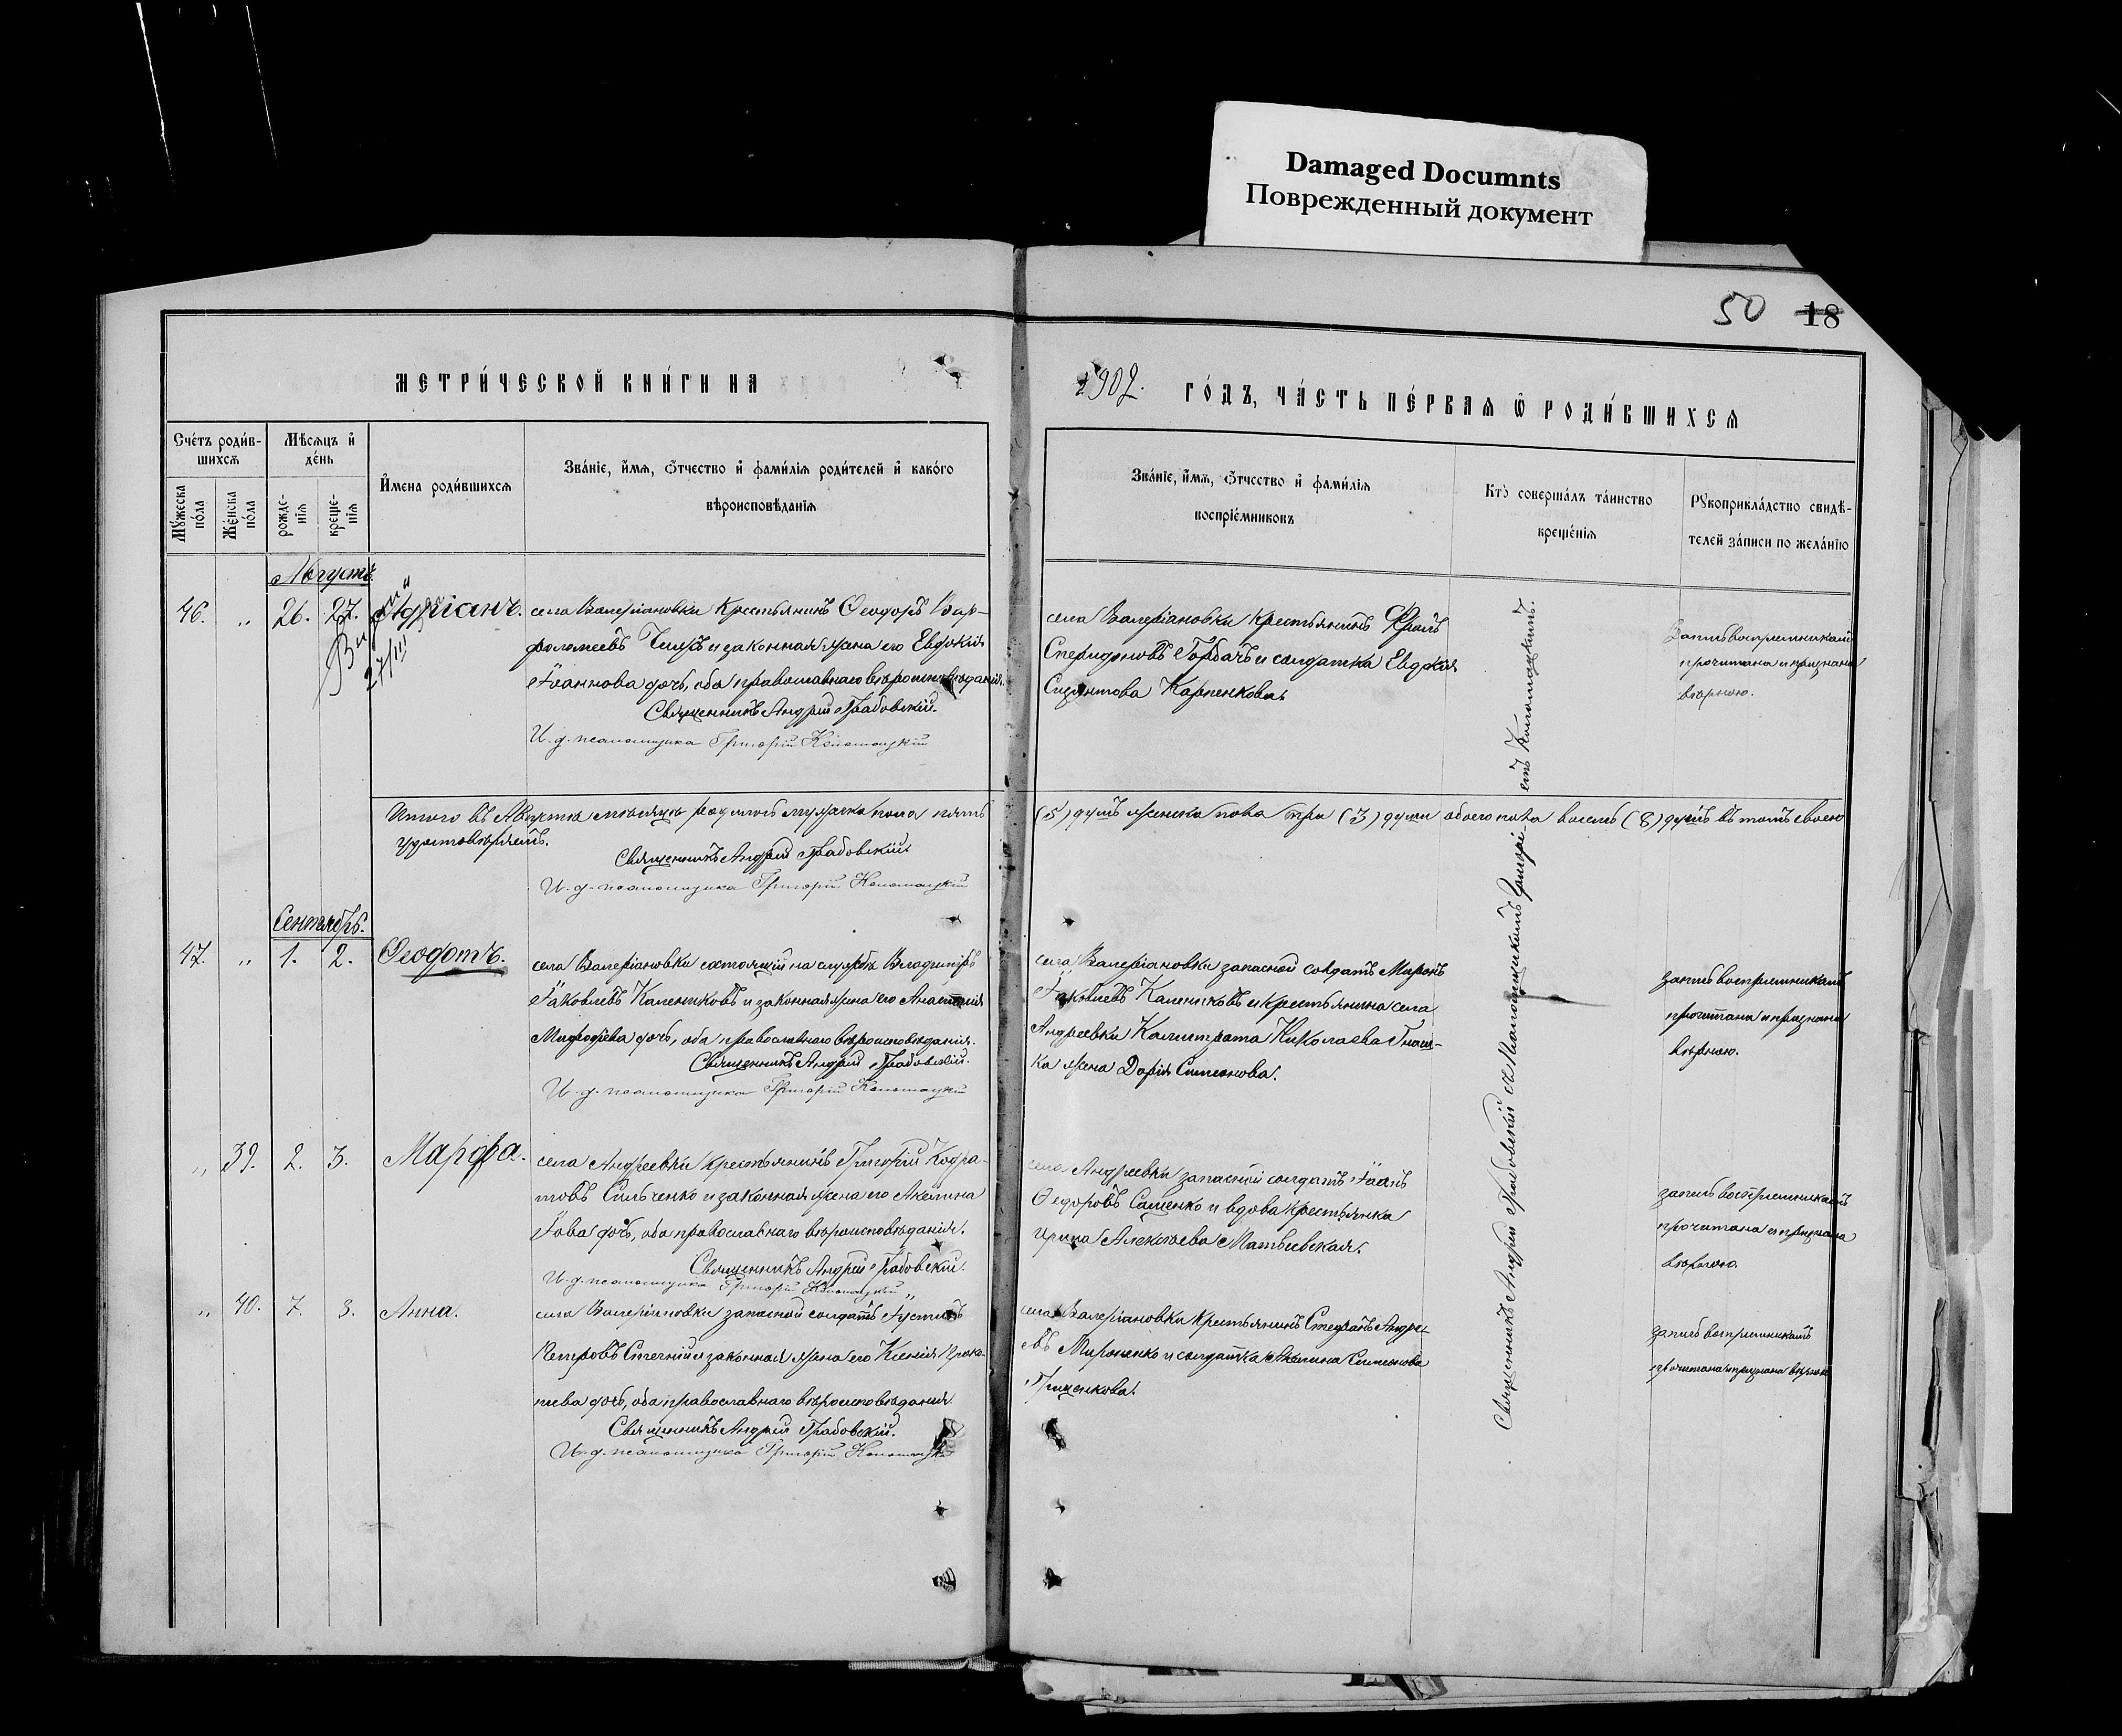 Damaged Documnts
Поврежденный документ
50 18
МЕТРИ́ЧЕСКОЙ КНИ́ГИ НА
1902. ГО́ДЪ, ЧА́СТЬ ПЕ́РВАЯ Ѽ РОДИ́ВШИХСЯ
Сче́тъ роди́в-
шихсѧ
Мѣ́сѧцъ и҆
де́нь
И҆мена роди́вшихсѧ
Зва́нїе, и҆́мѧ, ѻ҆́тчество и҆ фами́лїѧ роди́телей и҆ како́го
вѣроисповѣ́данїѧ
Мꙋ́жеска
по́ла
Же́нска
по́ла
рожде-
нїѧ
креще-
нїѧ
Зва́нїе, и҆́мѧ, ѻ҆́тчество и҆ фами́лїѧ
воспрїе́мниковъ
Кто̀ соверша́лъ та́инство
креще́нїѧ
Рꙋкоприкла́дство свидѣ́-
телей за́писи по жела́нїю
Августъ
46. „ 26. 27. Адріанъ.
27/III
села Валеріановки крестьянинъ Ѳеодоръ Вар-
ѳоломеевъ и законная жена его Евдокія
Іоаннова дочь, оба православнаго вѣроисповѣданія.
Священникъ Андрей Грабовскій.
И. д. псаломщика Григорій Коломацкій
села Валеріановки крестьянинъ
Спиридоновъ Горбачъ и солдатка Евдокія
Карпенкова.
Запись воспріемникамъ
прочитана и признана
вѣрною.
Итого въ Августѣ мѣсяцѣ родилось мужеска пола пять (5) душъ женска пола три (3) души обоего пола восемь (8) душъ въ томъ своею
удостовѣряемъ.
Священникъ Андрей Грабовскій.
И. д. псаломщика Григорій Коломацкій
Сентябрь.
47. „ 1. 2. Ѳеодотъ.
села Валеріановки состоящій на службѣ Владиміръ
Іаковлевъ Калениковъ и законная жена его Анастасія
Меѳодіева дочь, оба православнаго вѣроисповѣданія.
Священникъ Андрей Грабовскій.
И. д. псаломщика Григорій Коломацкій
села Валеріановки запасной солдатъ Миронъ
Іаковлевъ Калениковъ и крестьянина села
Андреевки Калистрата Николаева Гнат-
ка жена Дарія Симеонова.
запись воспріемникамъ
прочитана и признана
вѣрною.
„ 39. 2. 3. Марѳа.
села Андреевки крестьянинъ Григорій Кодра-
товъ Сильченко и законная жена его Акилина
Іова дочь, оба православнаго вѣроисповѣданія.
Священникъ Андрей Грабовскій.
И. д. псаломщика Григорій Коломацкій
села Андреевки запасной солдатъ Іоанъ
Ѳедоровъ Сащенко и вдова крестьянка
Ирина Алексѣева Матвіевская.
запись воспріемникамъ
прочитана и признана
вѣрною.
„ 40. 7. 3. Анна.
села Валеріановки запасной солдатъ Іустинъ
Петровъ и законная жена его Ксенія
дочь, оба православнаго вѣроисповѣданія.
Священникъ Андрей Грабовскій.
И. д. псаломщика Григорій Коломацкій
села Валеріановки крестьянинъ Стефанъ Андре-
евъ Мироненко и солдатка Акилина Симеонова
Грищенкова.
запись воспріемникамъ
прочитана и признана вѣрною
Священникъ Андрей Грабовскій съ псаломщикомъ Григорі-
емъ Коломацкимъ.